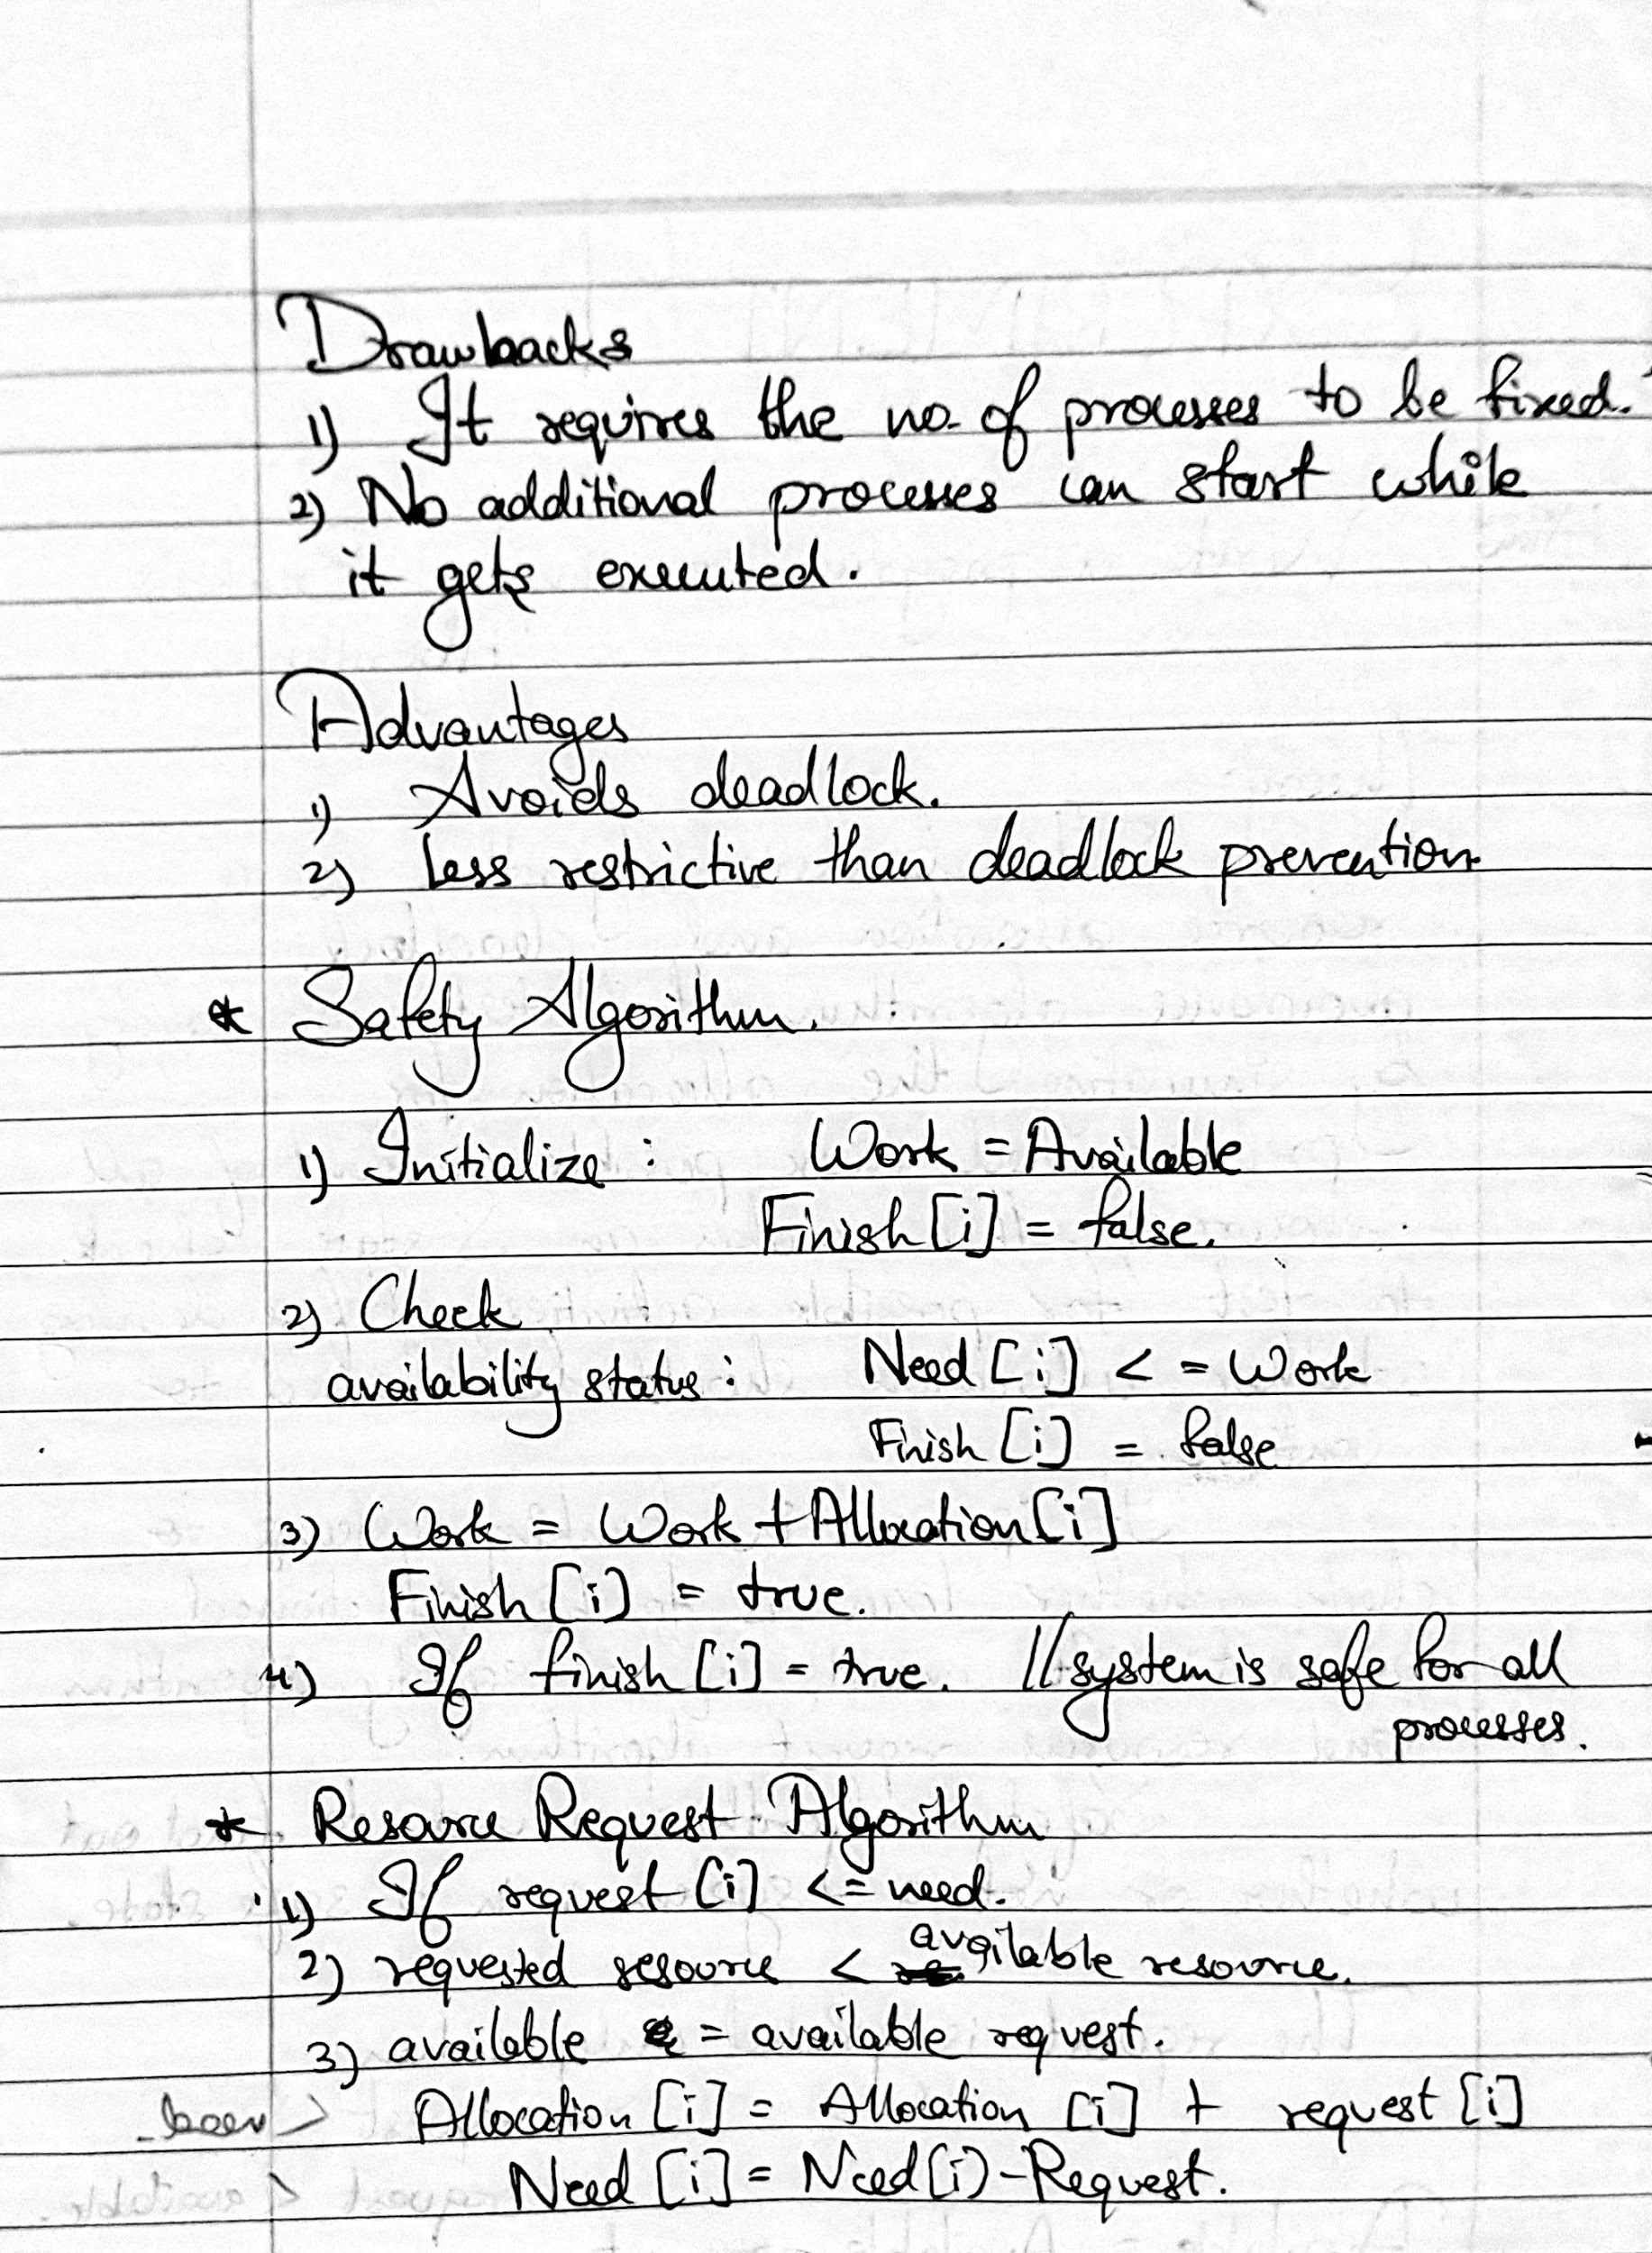 Drawbacks
1) It requires the no. of processes to be fixed.
2) No additional processes can start while
it gets executed.
Advantages
1) Avoids deadlock.
2) Less restrictive than deadlock prevention.
* Safety Algorithm.
1) Initialize : Work = Available
Finish [i] = false.
2) Check
availability status : Need [i] < = Work
Finish [i] = false
3) Work = Work + Allocation [i]
Finish [i] = true.
4) If finish [i] = true. // system is safe for all
processes.
* Resource Request Algorithm
1) If request [i] <= need.
2) requested resource < available resource.
3) available = available request.
Allocation [i] = Allocation [i] + request [i]
Need [i] = Need (i) - Request.